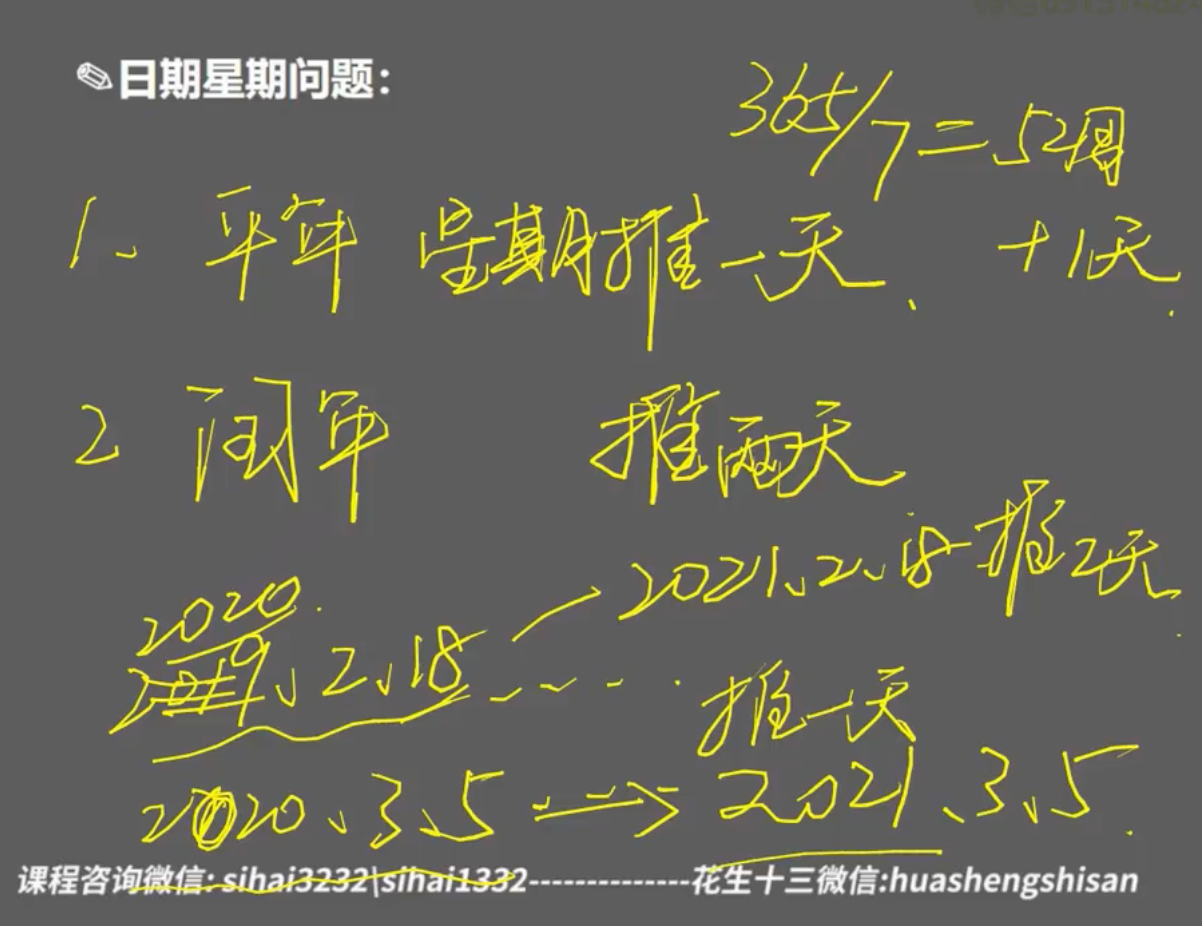 日期星期问题：
365/7=52周
1、平年 星期推一天、 +1天.
2 闰年 推两天
2021.2.18 推2天.
2020.
2019、2、18 ---...
推一天
2020、3、5 ⇒ 2021、3、5.
课程咨询微信: sihai3232\sihai1332--------------花生十三微信:huashengshisan